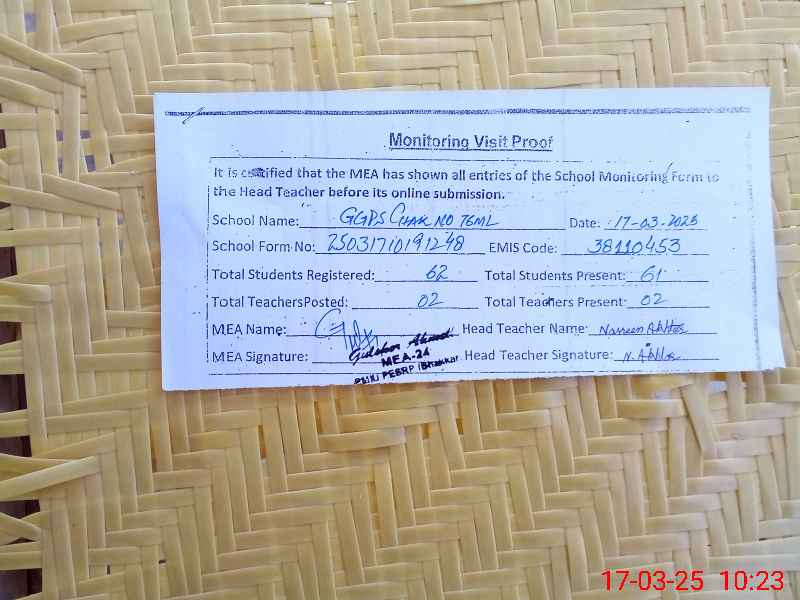 Monitoring Visit Proof
It is certified that the MEA has shown all entries of the School Monitoring Form to
the Head Teacher before its online submission.
School Name: GGPS Chak NO 76ML Date: 17-03-2025
School Form No: 25031710191248 EMIS Code: 38110453
Total Students Registered: 62 Total Students Present: 61
Total TeachersPosted: 02 Total Teachers Present: 02
MEA Name: Head Teacher Name: Nasreen Akhtar
MEA Signature: Head Teacher Signature: N. Akhtar
MEA-24
PEBRP Bhakkar
17-03-25 10:23